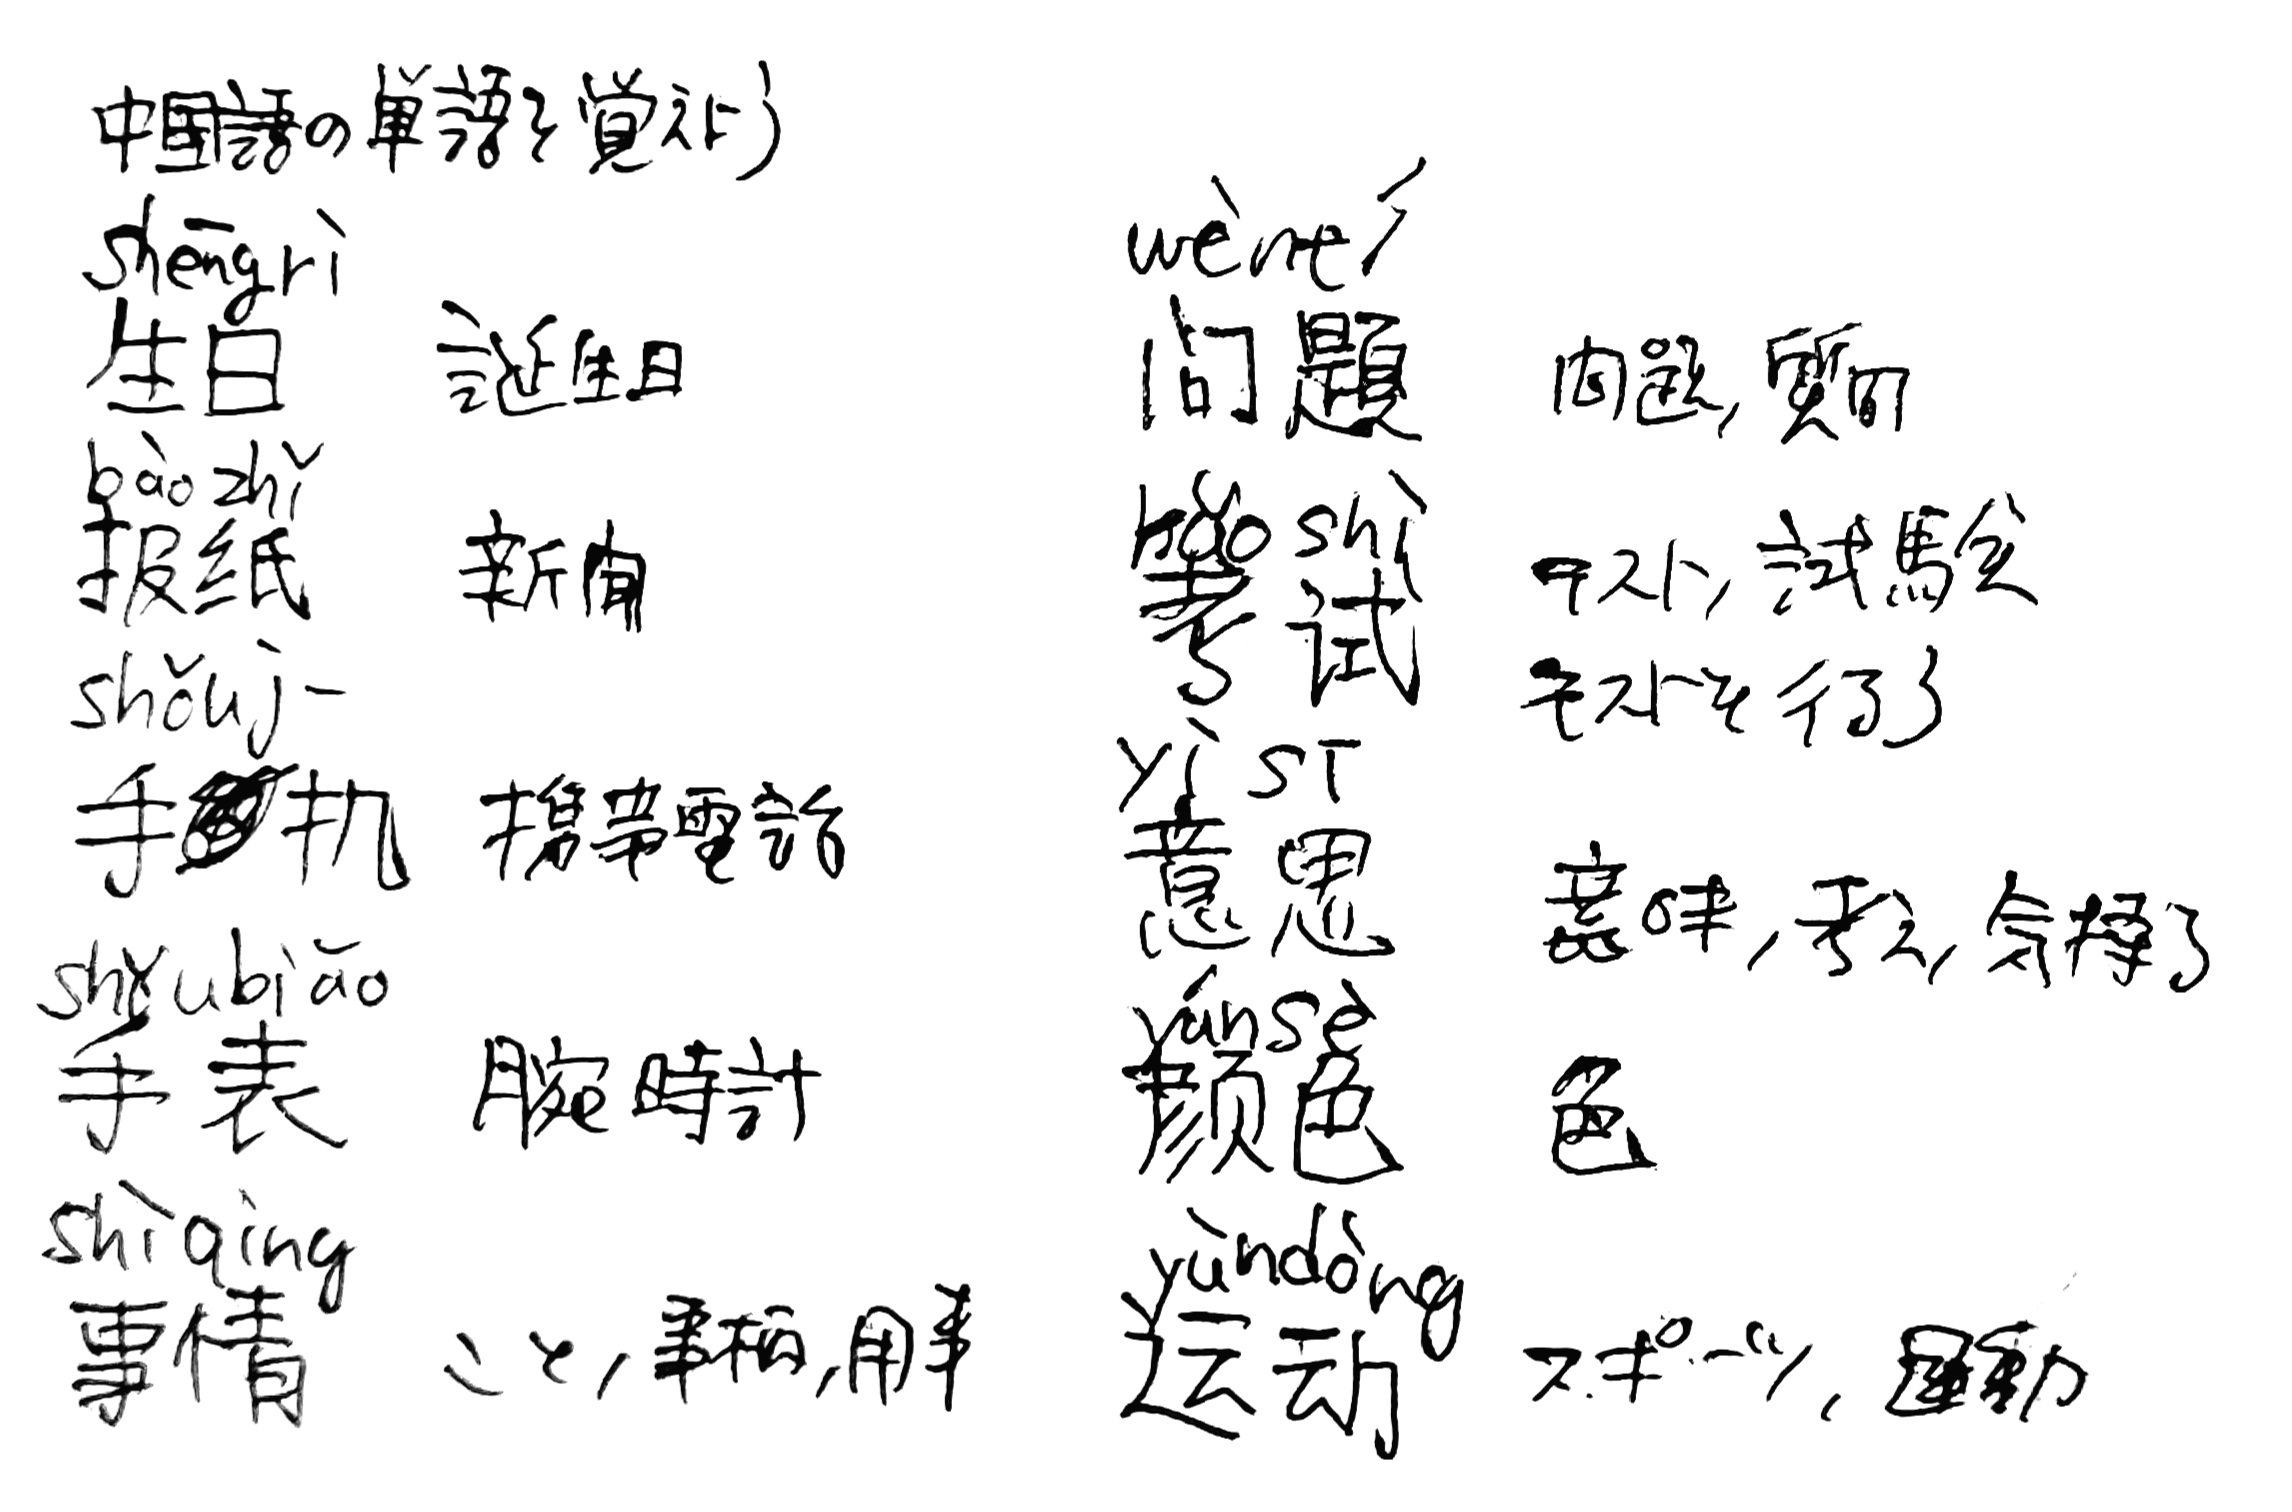 中国語の単語を覚えよう
shēngrì
生日 誕生日
bàozhǐ
报纸 新聞
shǒuj-
手机 携帯電話
shǒubiǎo
手表 腕時計
shìqing
事情 こと,事柄,用事
wènt
问題 問題,質問
kǎoshì
考试 テスト,試験
テストを行う
yìsī
意思 意味,考え,気持ち
yánsè
颜色 色
yùndòng
运动 スポーツ,運動